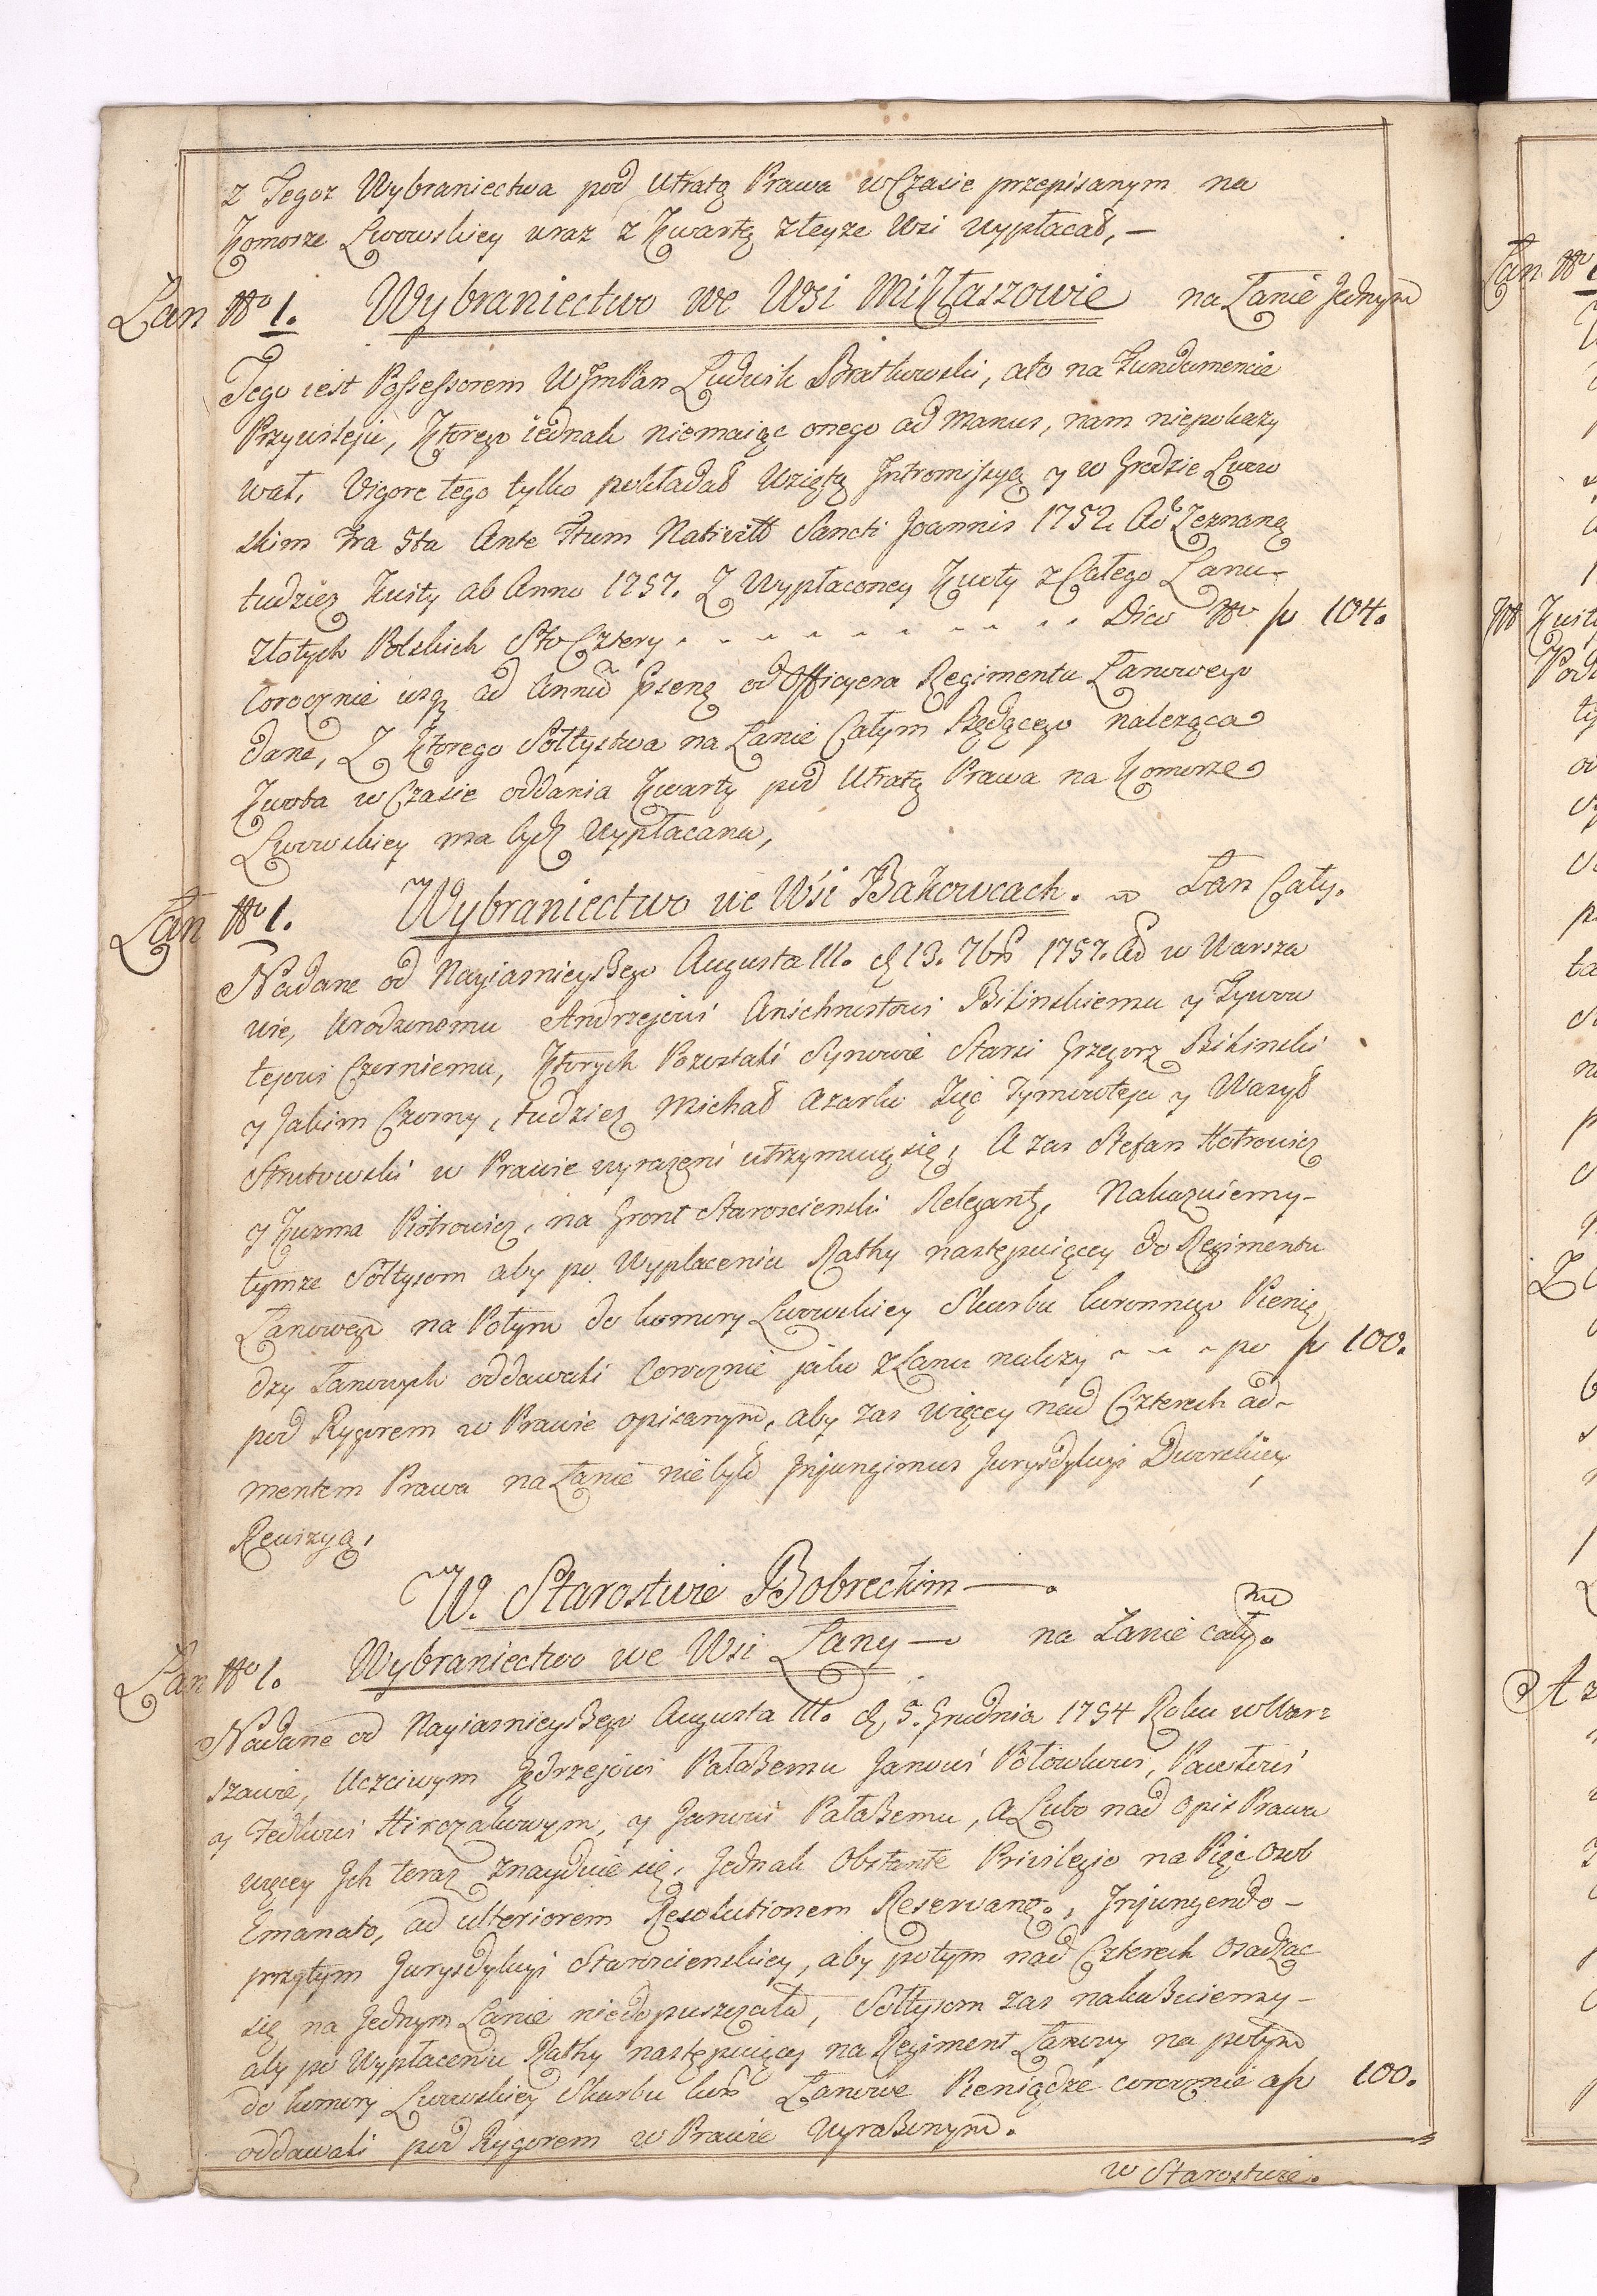 z Tegoz Wybraniectwa pod Utratą Prawa w Czasie przepisanym na
Komorze Lwowskiey wraz z Kwartą z teyze Wsi wypłacał,—
Łan No 1. Wybraniectwo we Wsi Mikłaszowie na Łanie Jednym
Tego iest Possessorem WJmPan Ludwik Bratkowski, a to na Fundamencie
Przywileju, Ktorego iednak niemaiąc onego ad manus, nam niepokazy
wał, Vigore tego tylko pokładał Wziętą Intromissyą y w Grodzie Lwow
skim Fra 3tia Ante Ftum Nativitt Sancti Joannis 1752 Ao Zeznaną
tudziez Kwity ab Anno 1757. Z Wypłaconey Kwoty z Całego Łanu-
Złotych Polskich Sto Cztery - - - - - - - - - Dico No fl 104.
Corocznie usq ad Annum Psene od Officyera Regimentu Łanowego
dane, Z Ktorego Sołtystwa na Łanie Całym Będącego naleząca
Kwota w Czasie oddania Kwarty pod Utratą Prawa na Komorze
Lwowskiey ma bydź Wypłacana,
Łan No 1. Wybraniectwo we Wsi Bakowcach. Łan Cały.
Nadane od Nayiasnieyszego Augusta III. d 13. 7br 1757. Ao w Warsza
wie, Urodzonemu Andrzejowi Bilinskiemu y Tymow
tejowi Czerniemu, Ktorych Pozostali Synowie Starsi Grzegorz Bilinski
y Jakim Czorny, tudziez Michał Azarko Zięć Tymowteja y Wasyl
Strutowski w Prawie wyrazeni utrzymuią się; A zas Stefan Kotrowicz
y Kuzma Piotrowicz, na Gront Staroscienski Relegantr, Nakazuiemy-
tymze Sołtysom aby po Wypłaceniu Rathy następuiącey do Regimentu
Łanowego na Potym do komory Lwowskiey Skarbu koronnego Pienię
dzy Łanowych oddawali Corocznie jako z Łanu nalezy - - - po fl 100.
pod Rygorem w Prawie opisanym, aby zas więcey nad Czterech ad-
mentem Prawa na Łanie nie było Injungimus Jurysdykcyi Dworskiey
Rewizyą,
W. Starostwie Bobreckim—.
Łan No 1. Wybraniectwo we Wsi Łany— na Łanie całym.
Nadane od Nayiasnieyszego Augusta III. d, 5. Grudnia 1754 Roku w Warz
szawie, Uczciwym Jędrzejowi Pałaszemu Janowi Połowkowi, Pawłowi
y Fedkowi Hirczakowym, y Janowi Pałaszemu, A Lubo nad opis Prawa
więcey Jch teraz znayduie się, Jednak Obstante Privilegio na Pięć Osob
Emanato, ad ulteriorem Resolutionem Reservantr, Injungendo-
przytym Jurysdykcyi Staroscienskiey, aby potym nad Czterech osadzac
się na Jednym Łanie niedopuszczała, Sołtysom zas nakaszuiemy-
aby po Wypłaceniu Rathy następuiącey na Regiment Łanowy na potym
do komory Lwowskiey Skarbu kor Łanowe Pieniądze corocznie a fl 100.
oddawali pod Rygorem w Prawie Wyraszonym.
w Starostwie.